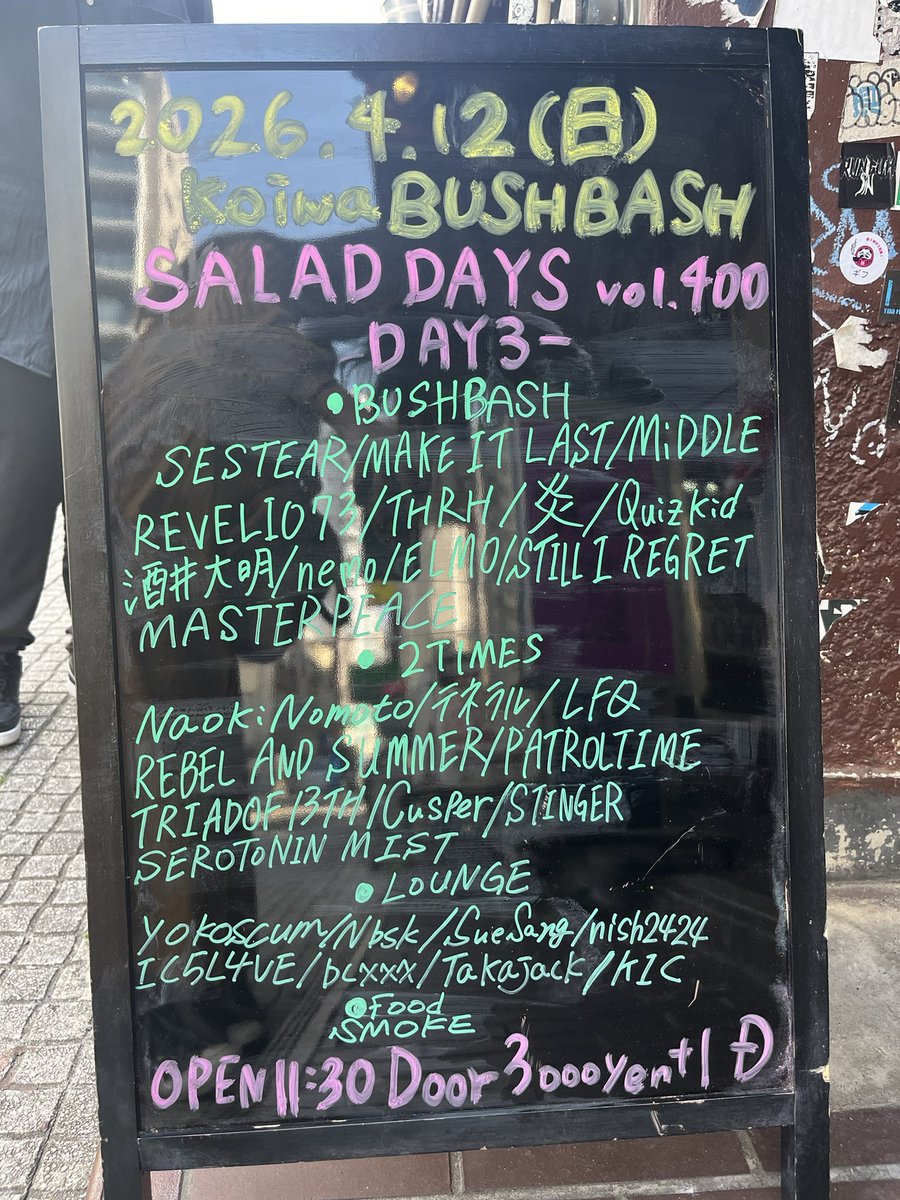 2026.4.12(日)
Koiwa BUSHBASH
SALAD DAYS vol.400
-DAY3-
•BUSHBASH
SESTEAR/MAKE IT LAST/MiDDLE
REVELIO73/THRH/炎/Quizkid
酒井大明/nemo/ELMO/STILL I REGRET
MASTERPEACE
•2TIMES
Naoki Nomoto/テネラル/LFQ
REBEL AND SUMMER/PATROLTIME
TRIADOF13TH/Cusper/STINGER
SEROTONIN MIST
•LOUNGE
Yokoscum/Nbsk/SueSang/nish2424
IC5L4VE/bcxxx/Takajack/KIC
•Food
SMOKE
OPEN 11:30 Door 3000yen+1D
RUN FOR
ギフ